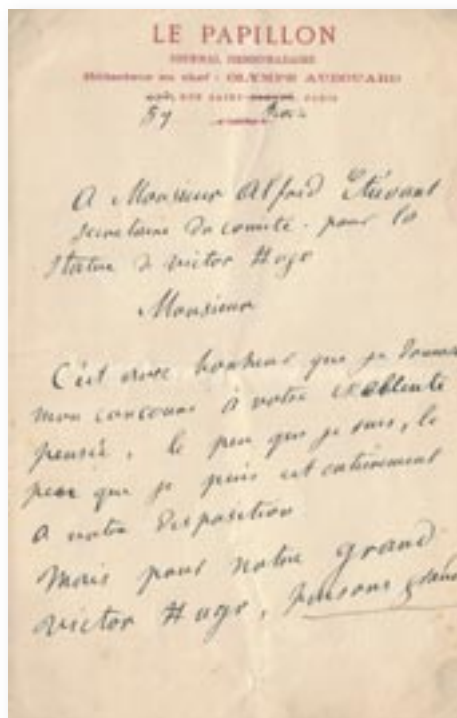 LE PAPILLON
JOURNAL HEBDOMADAIRE
Rédacteur en chef : OLYMPE AUDOUARD
RUE SAINT- PARIS
A Monsieur Alfred Etiévant
secretaire du comité. pour la
Statue de victor Hugo
Monsieur
C'est avec bonheur que je donnerai
mon concours à votre excellente
pensée, le peu que je suis, le
peu que je puis est entièrement
a votre disposition
Mais pour notre grand
victor Hugo, faisons grand